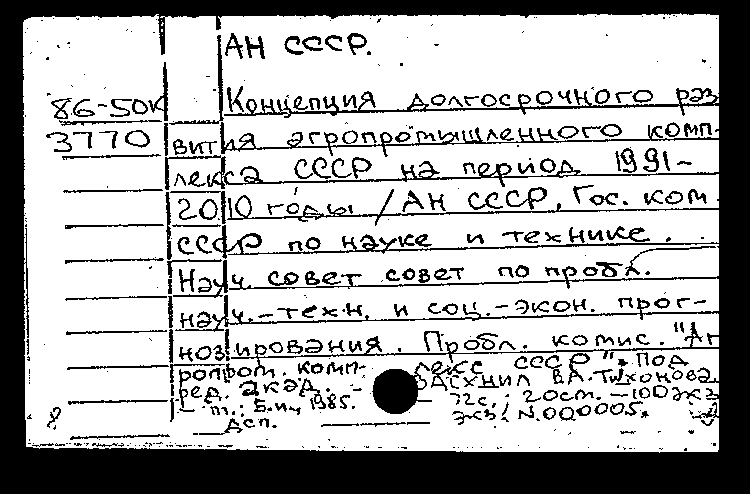 АН СССР.
86-50К Концепция долгосрочного раз
3770 вития агропромышленного комп-
лекса СССР на период 1991-
2010 годы / АН СССР, Гос. ком.
СССР по науке и технике.
Науч. совет совет по пробл.
науч.-техн. и соц.-экон. прог-
нозирования. Пробл. комис. "Аг
ропром. комп- лекс СССР". Под
ред. акад. - ВАСХНИЛ В.А. Тихонова.
- М.: Б.и, 1985. 72с.; 20см. - 100экз
Дсп. экз. N.000005.